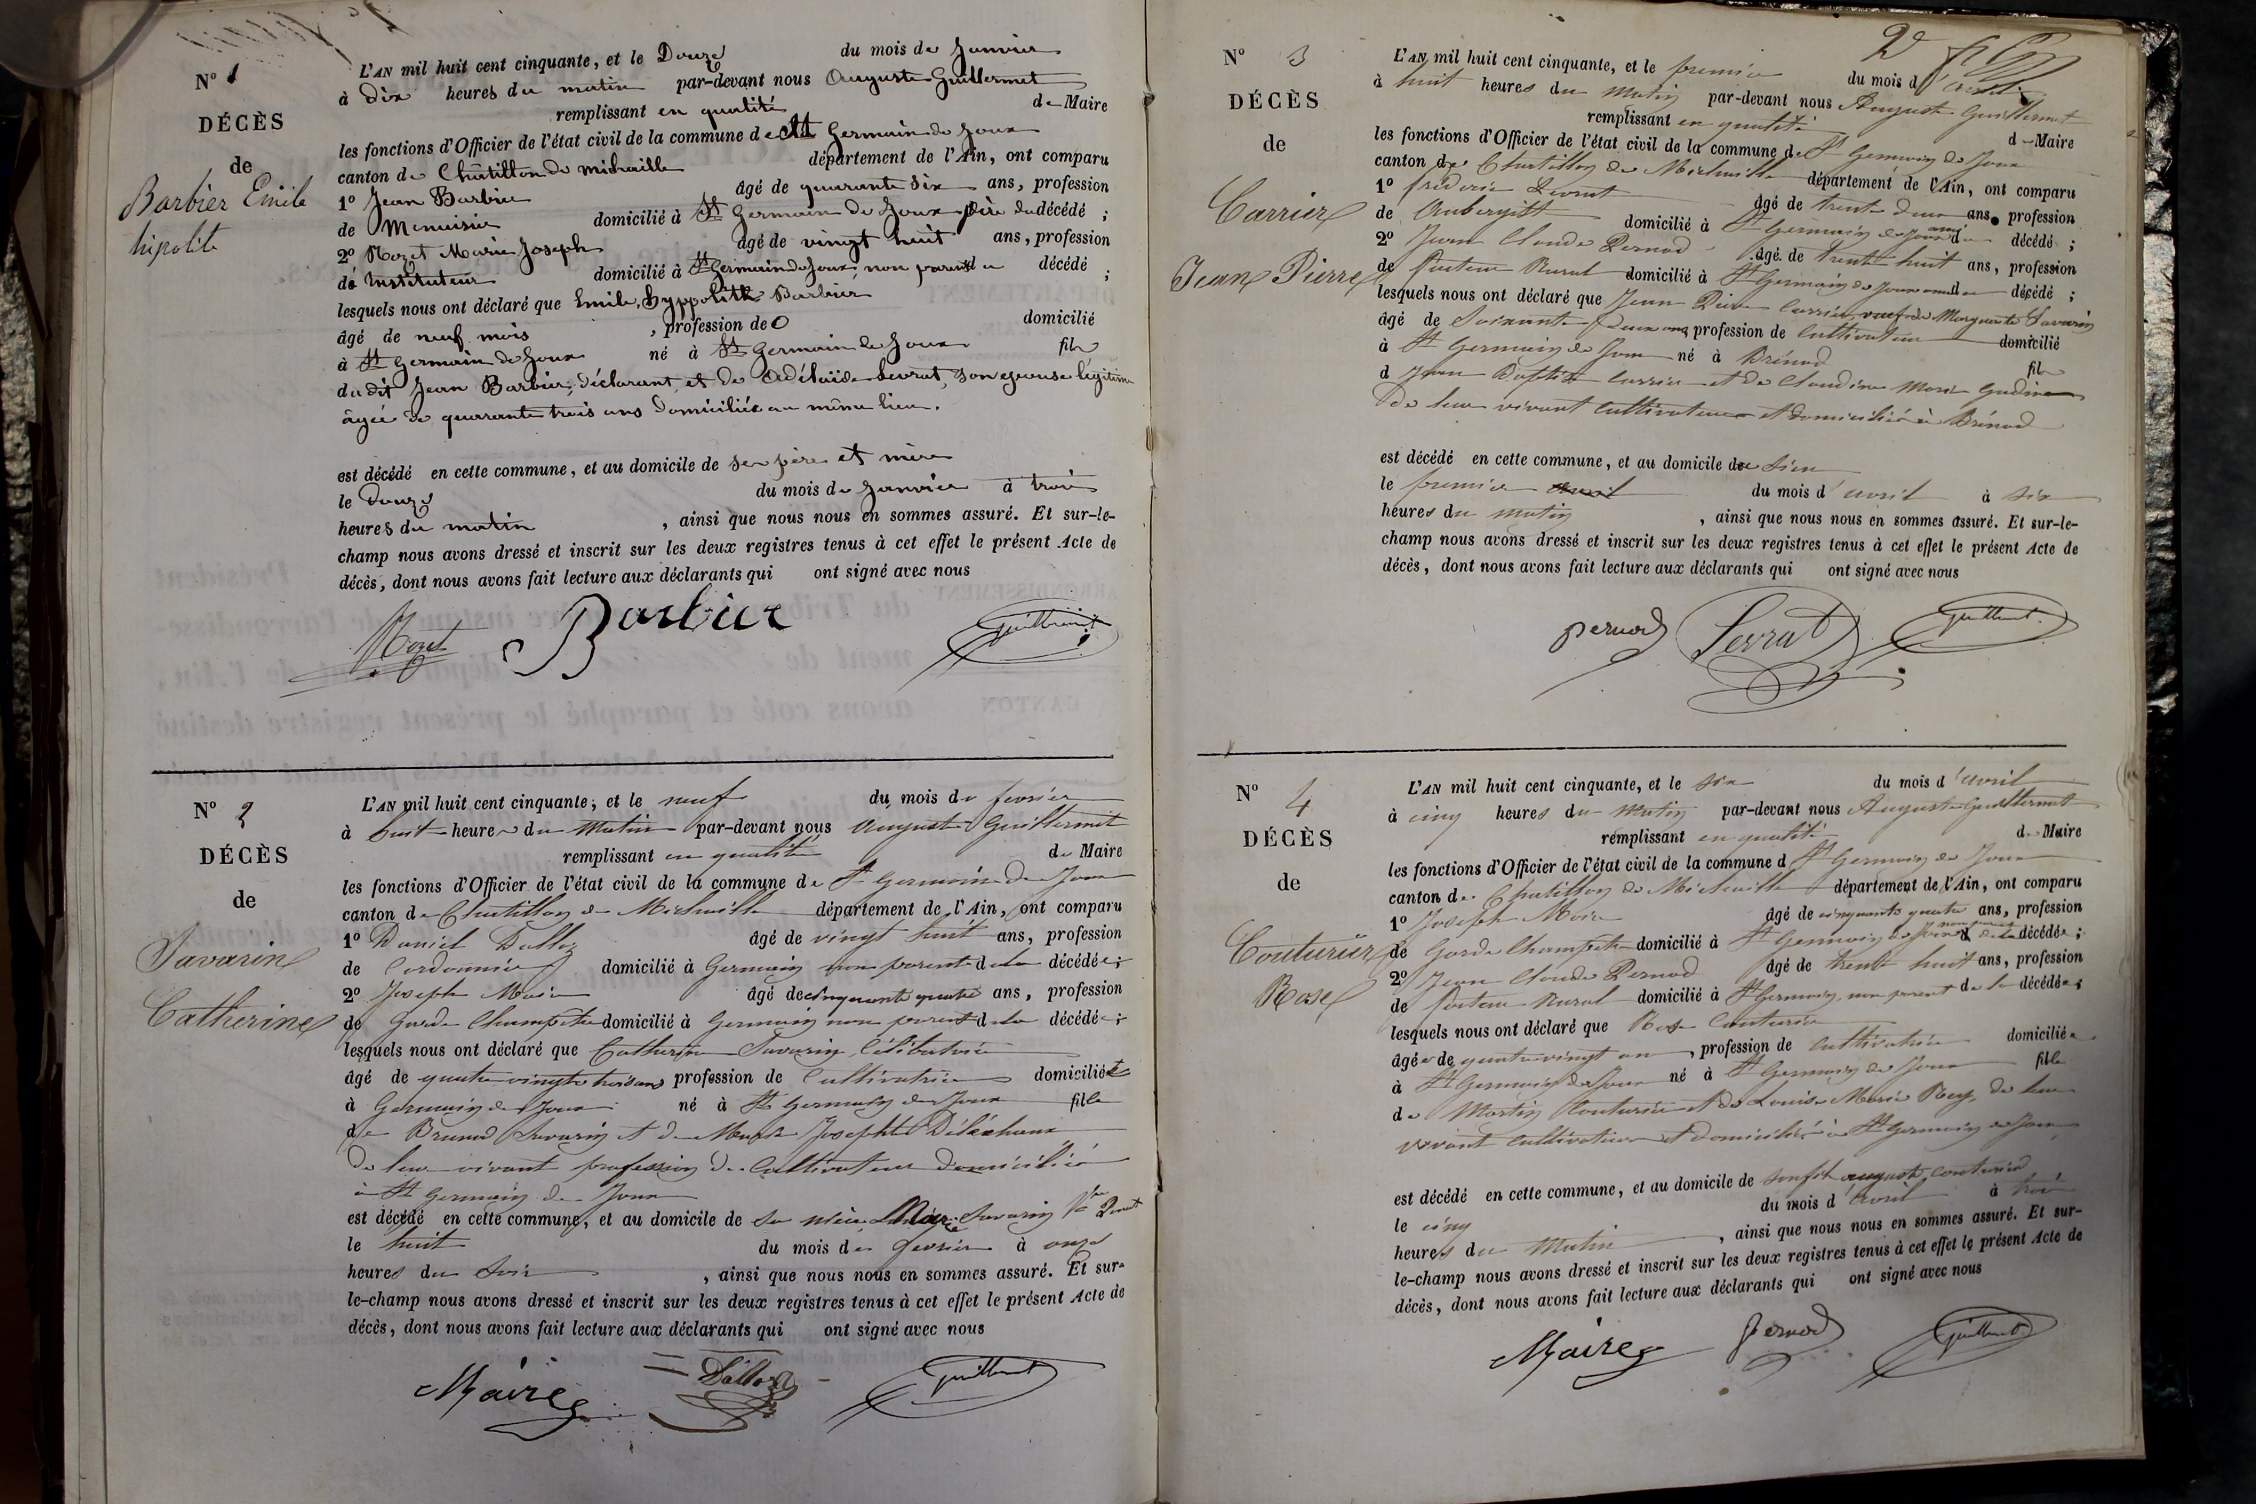 N° 1
DÉCÈS
de
Barbier Emile
hipolite
L'AN mil huit cent cinquante, et le Douze du mois de Janvier
à dix heures du matin par-devant nous Auguste Guillermet
remplissant en qualité de Maire
les fonctions d'Officier de l'état civil de la commune de St Germain de Joux
canton de Châtillon de michaille département de l'Ain, ont comparu
1° Jean Barbier âgé de quarante six ans, profession
de Menuisier domicilié à St Germain de Joux père du décédé ;
2° Rozet Marie Joseph âgé de vingt huit ans, profession
de Instituteur domicilié à St Germain de Joux, non parent du décédé ;
lesquels nous ont déclaré que Emile, Hyppolite Barbier
âgé de neuf mois , profession de 0 domicilié
à St Germain de Joux né à St Germain de Joux fils
du dit Jean Barbier, déclarant, et de Adélaïde Sevrat, son épouse légitime
âgée de quarante trois ans domiciliée au même lieu.
est décédé en cette commune, et au domicile de ses père et mère
le Douze du mois de Janvier à trois
heures du matin , ainsi que nous nous en sommes assuré. Et sur-le-
champ nous avons dressé et inscrit sur les deux registres tenus à cet effet le présent Acte de
décès, dont nous avons fait lecture aux déclarants qui ont signé avec nous
Rozet Barbier Guillermet
N° 2
DÉCÈS
de
Savarin
Catherine
L'AN mil huit cent cinquante, et le neuf du mois de fevrier
à huit heures du Matin par-devant nous Auguste Guillermet
remplissant en qualité de Maire
les fonctions d'Officier de l'état civil de la commune de St Germain de Joux
canton de Chatillon de Michaille département de l'Ain, ont comparu
1° Daniel Dalloz âgé de vingt huit ans, profession
de Cordonnier domicilié à Germain non parent de la décédée ;
2° Joseph Maire âgé de cinquante quatre ans, profession
de Garde Champetre domicilié à Germain non parent de la décédée ;
lesquels nous ont déclaré que Catherine Savarin, Célibataire
âgé de quatre vingts trois ans profession de Cultivatrice domiciliée
à Germain de Joux né à St Germain de Joux fille
de Brunod Savarin et de Marie Josephte
de leur vivant profession de Cultivateur domiciliés
à St Germain de Joux
est décédé en cette commune, et au domicile de sa nièce Marie Savarin Ve
le huit du mois de fevrier à onze
heures du Soir , ainsi que nous nous en sommes assuré. Et sur-
le-champ nous avons dressé et inscrit sur les deux registres tenus à cet effet le présent Acte de
décès, dont nous avons fait lecture aux déclarants qui ont signé avec nous
Maire Dalloz Guillermet
2e
N° 3
DÉCÈS
de
Carrier
Jean Pierre
L'AN mil huit cent cinquante, et le premier du mois d'avril
à huit heures du Matin par-devant nous Auguste Guillermet
remplissant en qualité de Maire
les fonctions d'Officier de l'état civil de la commune de St Germain de Joux
canton de Chatillon de Michaille département de l'Ain, ont comparu
1° fréderic Sevrat âgé de trente deux ans, profession
de Aubergiste domicilié à St Germain de Joux ami du décédé ;
2° Jean Claude Pernod âgé de trente huit ans, profession
de facteur Rural domicilié à St Germain de Joux ami du décédé ;
lesquels nous ont déclaré que Jean Pierre Carrier, veuf de Marguerite Savarin
âgé de Soixante deux ans profession de Cultivateur domicilié
à St Germain de Joux né à Brénod fils
d Jean Baptiste Carrier et de Claudine Marie
de leur vivant cultivateurs et domiciliés à Brénod
est décédé en cette commune, et au domicile de sien
le premier du mois d'avril à six
heures du matin , ainsi que nous nous en sommes assuré. Et sur-le-
champ nous avons dressé et inscrit sur les deux registres tenus à cet effet le présent Acte de
décès, dont nous avons fait lecture aux déclarants qui ont signé avec nous
pernod Sevrat Guillermet
N° 4
DÉCÈS
de
Couturier
Rose
L'AN mil huit cent cinquante, et le six du mois d'avril
à cinq heures du Matin par-devant nous Auguste Guillermet
remplissant en qualité de Maire
les fonctions d'Officier de l'état civil de la commune d St Germain de Joux
canton de Chatillon de Michaille département de l'Ain, ont comparu
1° Joseph Maire âgé de cinquante quatre ans, profession
de Garde Champetre domicilié à St Germain de Joux non parent de la décédée ;
2° Jean Claude Pernod âgé de trente huit ans, profession
de facteur Rural domicilié à St Germain, non parent de la décédée ;
lesquels nous ont déclaré que Rose Couturier
âgée de quatre vingt un , profession de Cultivatrice domiciliée
à St Germain de Joux né à St Germain de Joux fille
de Martin Couturier et de Louise Marie Rey, de leur
vivant cultivateurs et domiciliés à St Germain de Joux
est décédé en cette commune, et au domicile de son fils auguste couturier
le cinq du mois d'avril à trois
heures du Matin , ainsi que nous nous en sommes assuré. Et sur-
le-champ nous avons dressé et inscrit sur les deux registres tenus à cet effet le présent Acte de
décès, dont nous avons fait lecture aux déclarants qui ont signé avec nous
Maire pernod Guillermet